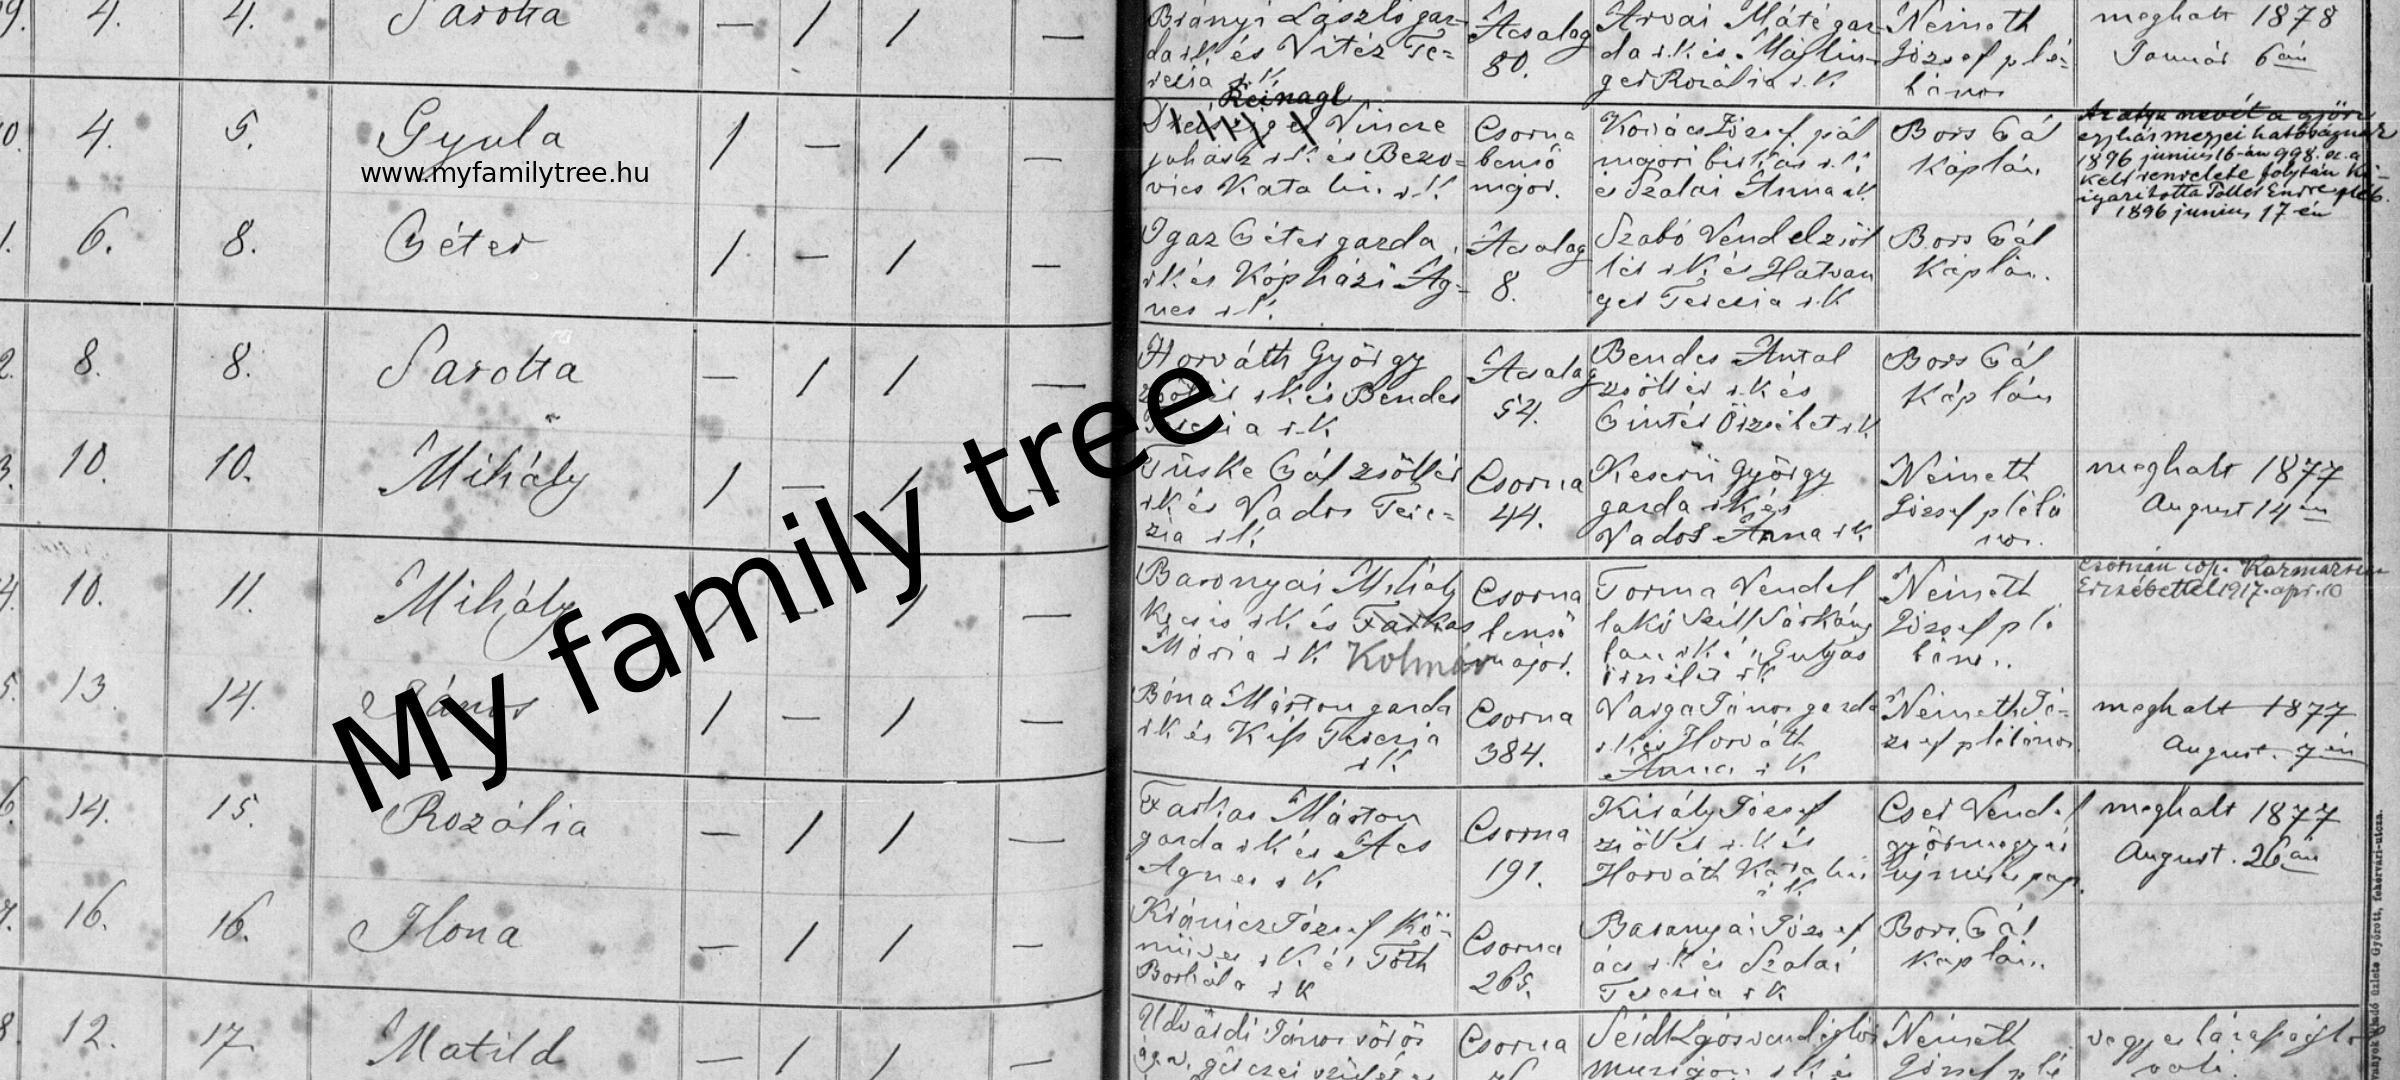 4. 4. Sarolta
Brányi László gaz-
da r.k. és Vitéz Te-
rezia r.k.
Acsalag
80.
Árvai Máté gaz-
da r.k. és
ger Rozália r.k.
Németh
József plé-
bános
meghalt 1878
Január 6án
4. 5. Gyula
www.myfamilytree.hu
Reinagl
Vincze
juhász r.k. és Bezo-
vics Katalin r.k.
Csorna
bensö
major.
Kovács József pál
majori birkás r.k.
és Szalai Anna r.k.
Bors Gál
Káplán.
Az atya nevét a györi
egyházmegyei hatóságnak
1896 junius 16-án 998. sz. a.
kelt rendelete folytán ki-
igazította Endre pleb.
1896 junius 17-én
6. 8. Péter
Igaz Péter gazda
r.k. és Kópházi Ág-
nes r.k.
Acsalag
8.
Szabó Vendel zsöl
lér r.k. és Hatvan
ger Terezia r.k.
Bors Gál
Káplán.
8. 8. Sarolta
Horváth György
zsöllér r.k. és Bendes
Terezia r.k.
Acsalag
54.
Bendes Antal
zsöllér r.k. és
Pintér Örzsébet r.k.
Bors Gál
Káplán
10. 10. Mihály
Tüske Pál zsöllér
r.k. és Vados Tere-
zia r.k.
Csorna
44.
Keserü György
gazda r.k. és
Vados Anna r.k.
Németh
József plébá
nos.
meghalt 1877
August 14én
10. 11. Mihály
Baronyai Mihály
r.k. és Farkas
Mária r.k. Kolmár
Csorna
bensö
major.
Torma Vendel
lakó Szill Sárkány
ban r.k. és Gulyás
r.k.
Németh
József plé
bános.
Csornán cop.
Erzsébettel 1917. apr. 10
13. 14. János
Bóna Márton gazda
r.k. és Kiss Terezia
r.k.
Csorna
384.
Varga János gazda
r.k. és Horváth
Anna r.k.
Németh Jó-
zsef plébános
meghalt 1877
August. 7én
14. 15. Rozália
Farkas Márton
gazda r.k. és Ács
Ágnes r.k.
Csorna
191.
Király József
zsöllér r.k. és
Horváth Katalin
r.k.
Cser Vendel
györmegyei
újmisés pap.
meghalt 1877
August. 26án
16. 16. Ilona
József Kö-
mives r.k. és Tóth
Borbála r.k.
Csorna
265.
Baranyai József
ács r.k. és Szalai
Terezia r.k.
Bors Gál
Káplán.
12. 17. Matild
Udvardi János vörös
Csorna
Németh
József plé
My family tree